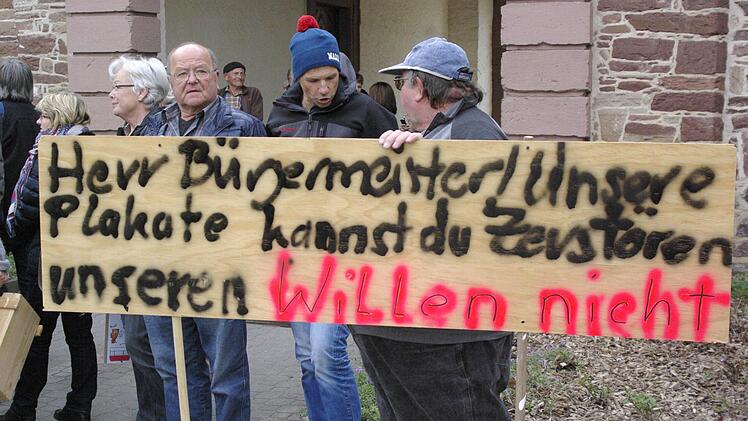 Herr Bürgermeister! Unsere
Plakate kannst du Zerstören
unseren Willen nicht